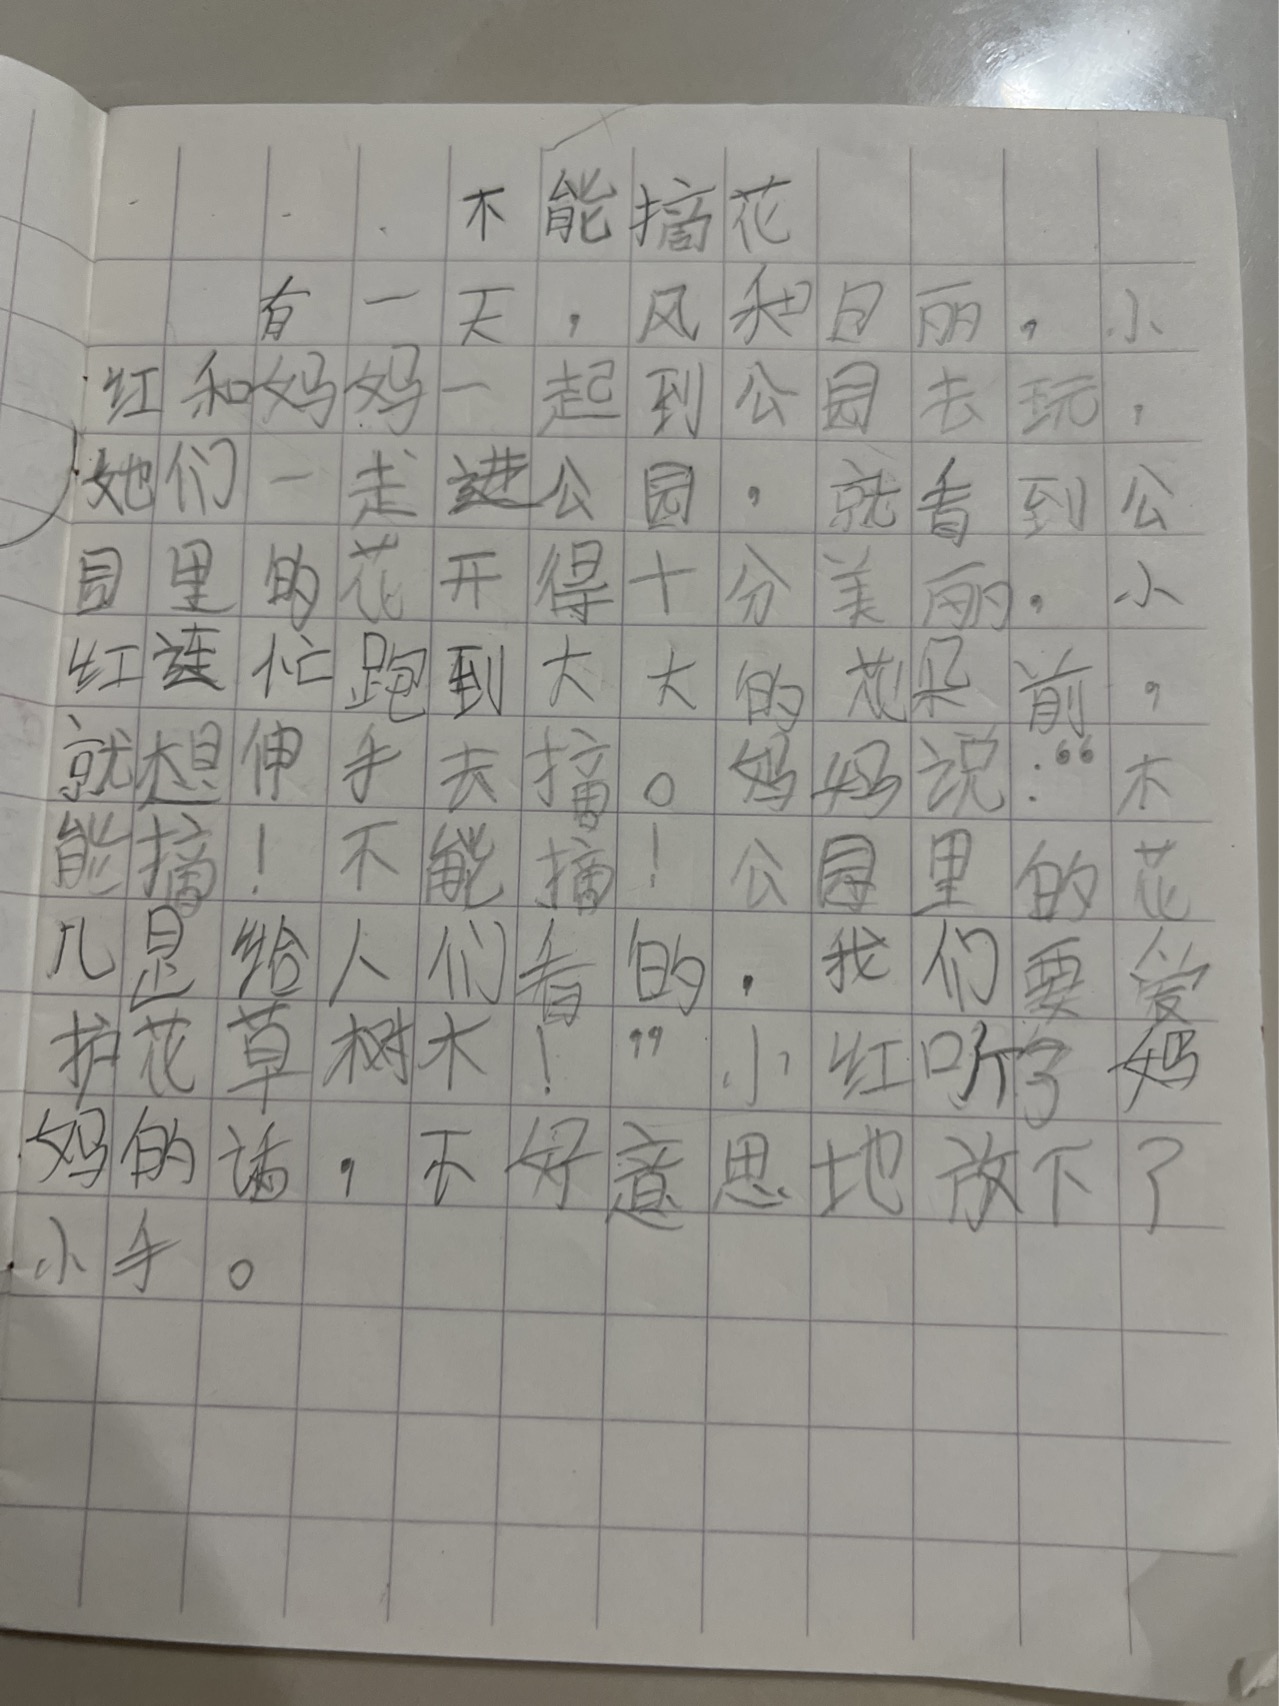 不能摘花
有一天，风和日丽，小
红和妈妈一起到公园去玩，
她们一走进公园，就看到公
园里的花开得十分美丽，小
红连忙跑到大大的花朵前，
就想伸手去摘。妈妈说：“不
能摘！不能摘！公园里的花
儿是给人们看的，我们要爱
护花草树木！”小红听了妈
妈的话，不好意思地放下了
小手。